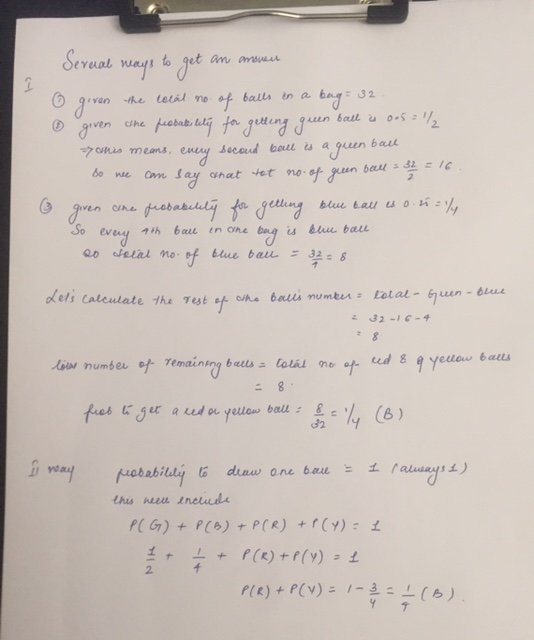 Several ways to get an answer
I
① given the total no. of balls in a bag = 32.
② given the probability for getting green ball is 0.5 = 1/2
⇒ this means, every second ball is a green ball
So we can say that tot no. of green ball = 32/2 = 16.
③ given the probability for getting blue ball is 0.25 = 1/4
So every 4th ball in the bag is blue ball
so total no. of blue ball = 32/4 = 8
Let's calculate the rest of the balls number = total - Green - blue
= 32 - 16 - 4
= 8
number of remaining balls = total no of red & yellow balls
= 8.
prob to get a red or yellow ball = 8/32 = 1/4 (B)
II way probability to draw one ball = 1 (always 1)
this include
P(G) + P(B) + P(R) + P(Y) = 1
1/2 + 1/4 + P(R) + P(Y) = 1
P(R) + P(Y) = 1 - 3/4 = 1/4 (B).